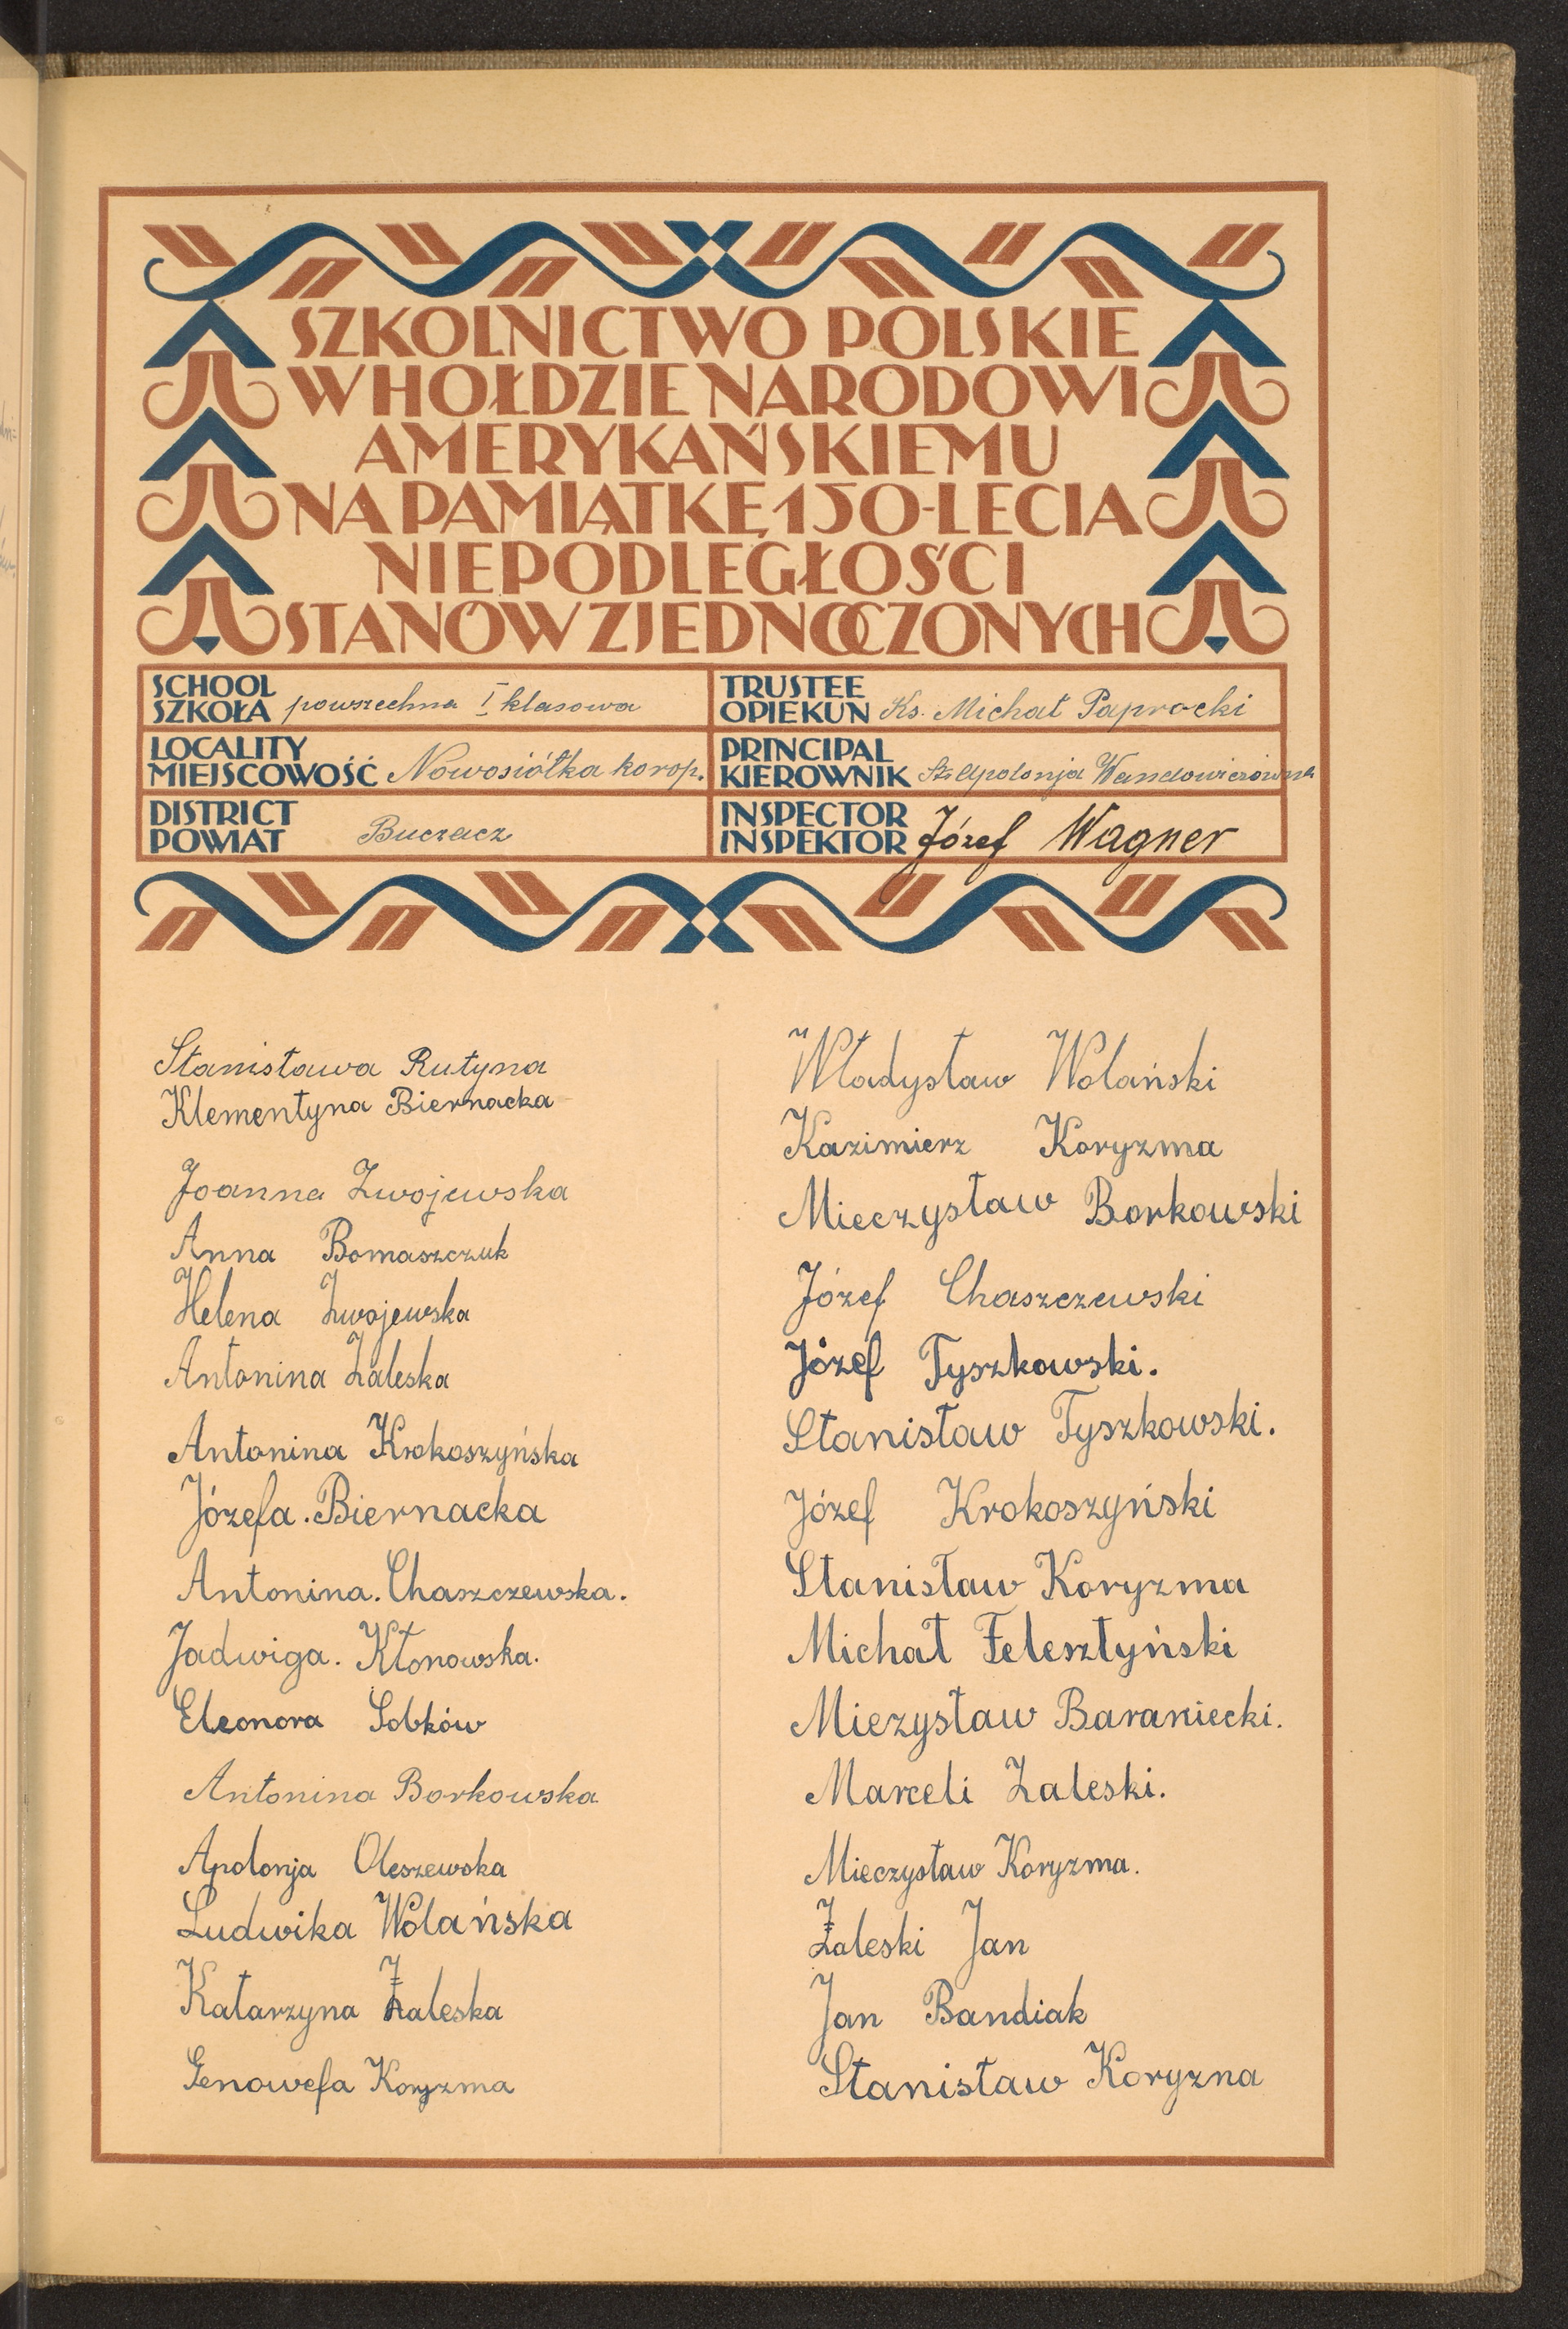 SZKOLNICTWO POLSKIE
W HOŁDZIE NARODOWI
AMERYKAŃSKIEMU
NA PAMIĄTKĘ 150-LECIA
NIEPODLEGŁOŚCI
STANÓW ZJEDNOCZONYCH
SCHOOL
SZKOŁA powszechna I klasowa
TRUSTEE
OPIEKUN Ks. Michał Paprocki
LOCALITY
MIEJSCOWOŚĆ Nowosiółka korop.
PRINCIPAL
KIEROWNIK Apolonja
DISTRICT
POWIAT Buczacz
INSPECTOR
INSPEKTOR Józef Wagner
Stanisława Rutyna
Klementyna Biernacka
Joanna Zwojewska
Anna Bomaszczuk
Helena Zwojewska
Antonina Zaleska
Antonina Krokoszyńska
Józefa. Biernacka
Antonina. Chaszczewska.
Jadwiga. Kłonowska.
Eleonora Sobków
Antonina Borkowska
Apolonja Oleszewska
Ludwika Wolańska
Katarzyna Zaleska
Genowefa Koryzma
Władysław Wolański
Kazimierz Koryzma
Mieczysław Borkowski
Józef Chaszczewski
Józef Tyszkowski.
Stanisław Tyszkowski.
Józef Krokoszyński
Stanisław Koryzma
Michał Felesztyński
Miezysław Baraniecki.
Marceli Zaleski.
Mieczysław Koryzma.
Zaleski Jan
Jan Bandiak
Stanisław Koryzna